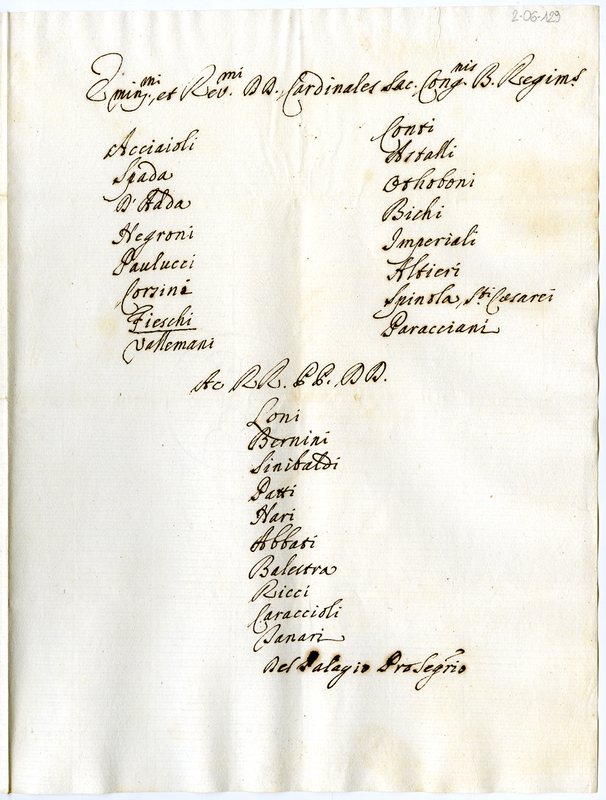 2-06-129
Emin.mi, et Rev.mi DD. Cardinales Sac. Cong.nis B. Regims
Acciaioli
Spada
D'Adda
Negroni
Paulucci
Corsini
Fieschi
Vallemani
Conti
Astalli
Othoboni
Bichi
Imperiali
Altieri
Spinola, S.ti Cæsarei
Paracciani
Ac RR. PP. DD.
Loni
Bernini
Sinibaldi
Patti
Nari
Abbati
Balestra
Ricci
Caraccioli
Panari
Del Palagio Pro Segrio